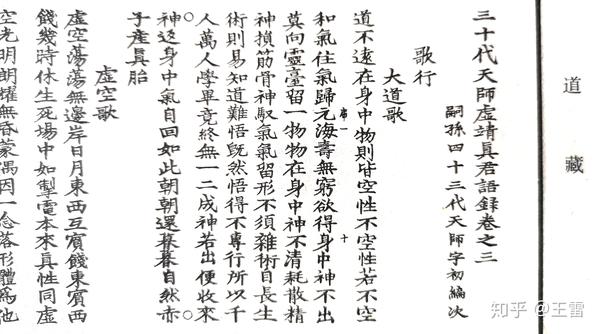 道藏
三十代天師虛靖眞君語錄卷之三
嗣孫四十三代天師字初編次
歌行
大道歌
道不遠在身中物則皆空性不空性若不空
和氣住氣歸元海壽無窮欲得身中神不出
席一 十
莫向靈臺留一物物在身中神不清耗散精
神損筋骨神馭氣氣留形不須雜術自長生
術則易知道難悟既然悟得不專行所以千
人萬人學畢竟終無一二成神若出便收來
神返身中氣自回如此朝朝還暮暮自然赤
子產眞胎
虛空歌
虛空蕩蕩無邊岸日月東西互賓餞東賓西
餞幾時休生死場中如掣電本來眞性同虛
空光明朗耀無昏蒙偶因一念落形體爲他
知乎 @王雷